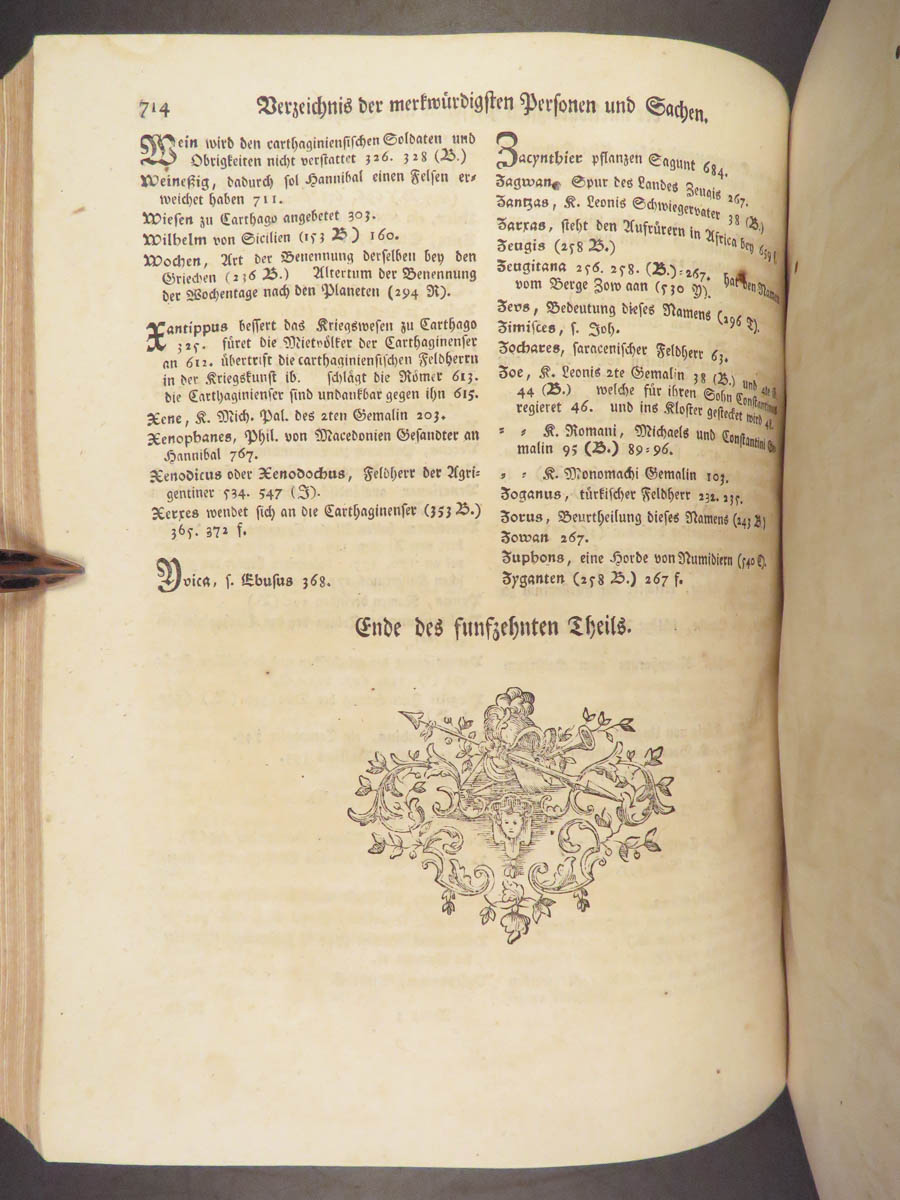 714 Verzeichnis der merkwürdigsten Personen und Sachen.
Wein wird den carthaginiensischen Soldaten und
Obrigkeiten nicht verstattet 326. 328 (B.)
Weineßig, dadurch sol Hannibal einen Felsen er⸗
weichet haben 711.
Wiesen zu Carthago angebetet 303.
Wilhelm von Sicilien (153 B) 160.
Wochen, Art der Benennung derselben bey den
Griechen (236 B.) Altertum der Benennung
der Wochentage nach den Planeten (294 R).
Xantippus bessert das Kriegswesen zu Carthago
325. füret die Mietvölker der Carthaginenser
an 612. übertrift die carthaginiensischen Feldherrn
in der Kriegskunst ib. schlägt die Römer 613.
die Carthaginienser sind undankbar gegen ihn 615.
Xene, K. Mich. Pal. des 2ten Gemalin 203.
Xenophanes, Phil. von Macedonien Gesandter an
Hannibal 767.
Xenodicus oder Xenodochus, Feldherr der Agri⸗
gentiner 534. 547 (J).
Xerxes wendet sich an die Carthaginenser (353 B.)
365. 372 f.
Yvica, s. Ebusus 368.
Zacynthier pflanzen Sagunt 684.
Zagwan, Spur des Landes Zeugis 267.
Zantzas, K. Leonis Schwiegervater 38 (B.)
Zarxas, steht den Aufrürern in Africa bey 659 f.
Zeugis (258 B.)
Zeugitana 256. 258. (B.)⸗267. hat den Namen
vom Berge Zow aan (530 Y).
Zevs, Bedeutung dieses Namens (296 T).
Zimisces, s. Joh.
Zochares, saracenischer Feldherr 63.
Zoe, K. Leonis 2te Gemalin 38 (B.) und 4te
44 (B.) welche für ihren Sohn Constantinus
regieret 46. und ins Kloster gestecket wird 48.
⸗ ⸗ K. Romani, Michaels und Constantini Ge⸗
malin 95 (B.) 89⸗96.
⸗ ⸗ K. Monomachi Gemalin 103.
Zoganus, türkischer Feldherr 232. 235.
Zorus, Beurtheilung dieses Namens (243 B)
Zowan 267.
Zuphons, eine Horde von Numidiern (540 C).
Zyganten (258 B.) 267 f.
Ende des funfzehnten Theils.